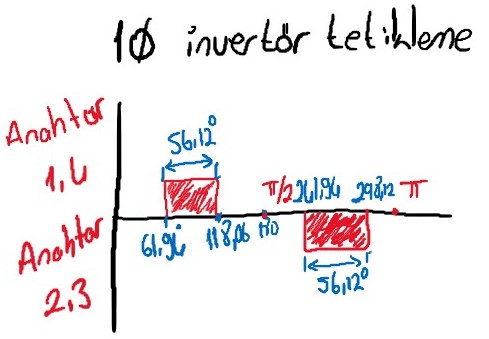 1Ø invertör tetikleme
Anahtar
1,4
56,12°
61,94
118,06
180
π/2
241,94
298,12
π
Anahtar
2,3
56,12°